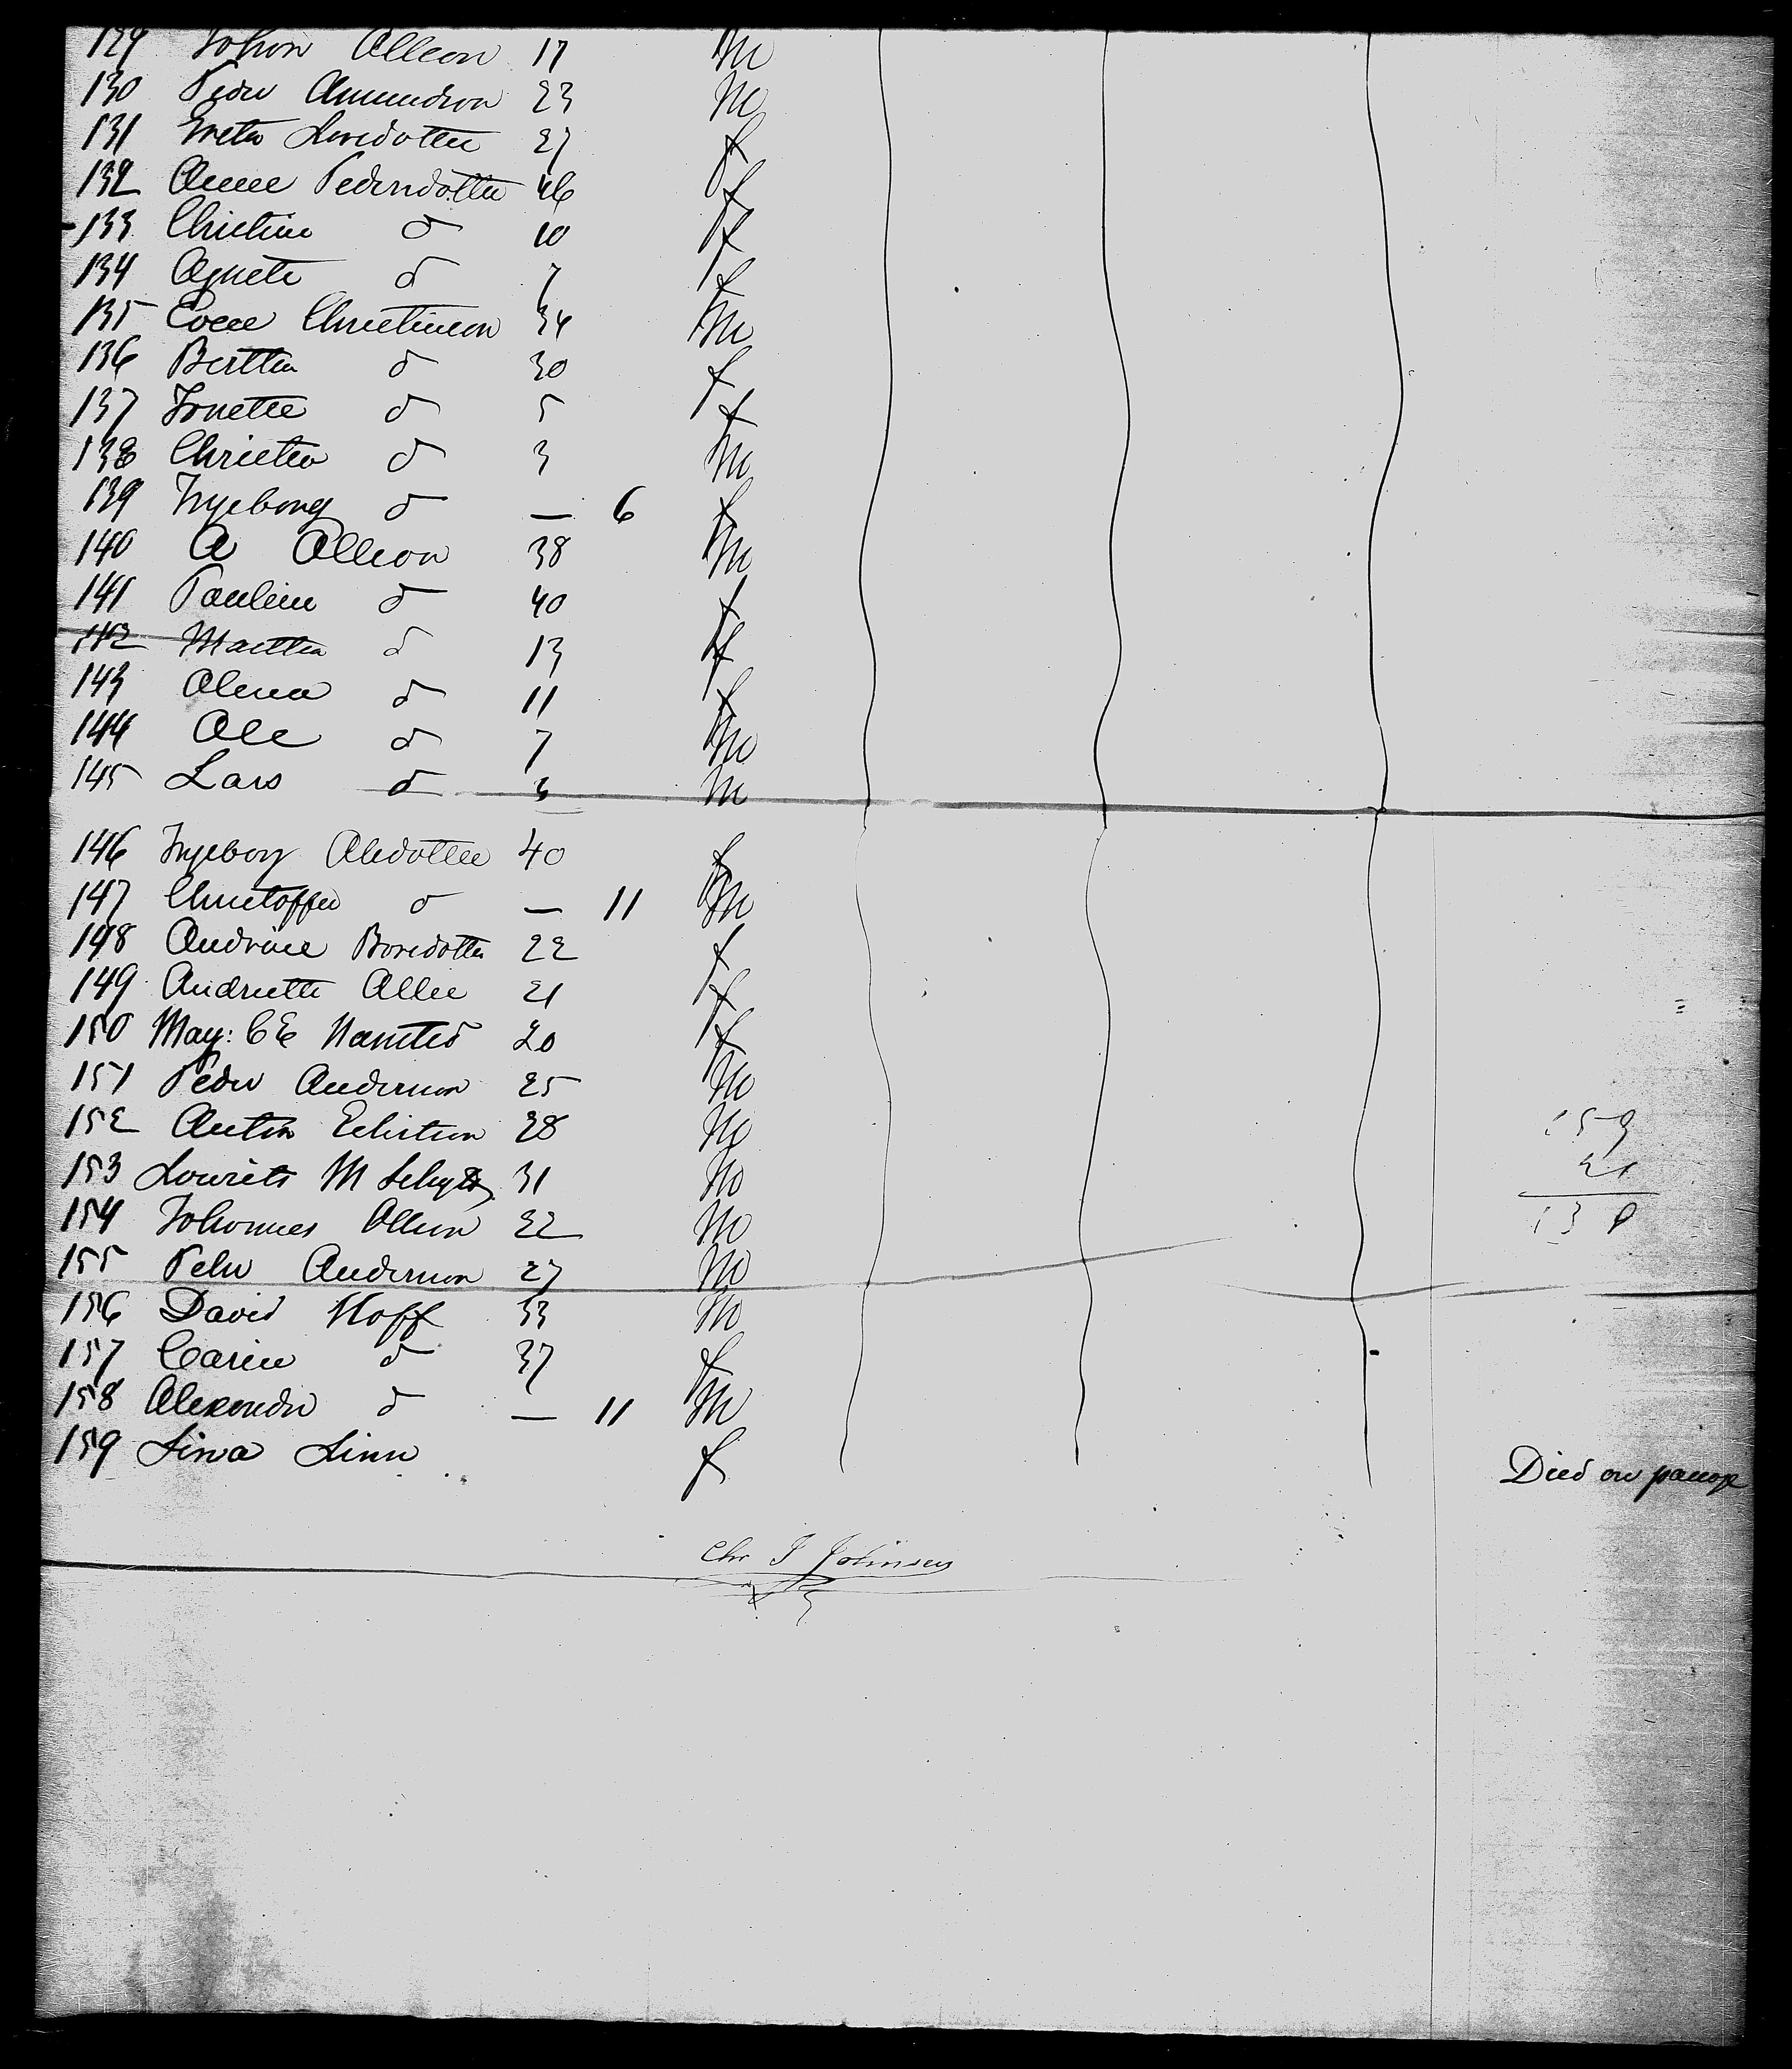 129 Johon Olleon 17 m
130 Peder Amundson 23 m
131 Greta Lorsdotter 27 f
132 Anne Pedersdotter 46 f
133 Christine d 10 f
134 Agnete d 7 f
135 Christiansen 34 m
136 Bertha d 30 f
137 d 5 f
138 Christen d 3 m
139 Ingeborg d — 6 f
140 A Olleon 38 m
141 Pauline d 40 f
142 Martha d 13 f
143 Olena d 11 f
144 Ole d 7 m
145 Lars d 3 m
146 Ingeborg Olsdotter 40 f
147 Christoffer d — 11 m
148 Andrine Borsdotter 22 f
149 Andriette Ollee 21 f
150 May: C E 20 f
151 Peder Anderson 25 m
152 Anton 28 m
153 Lourits M 31 m
154 Johannes Olleon 22 m
155 Peter Anderson 27 m
156 David Hoff 33 m
157 Carine d 37 f
158 Alexander d — 11 m
159 Lina Linn f Died on passage
159
21
138
Chr J Johnsen